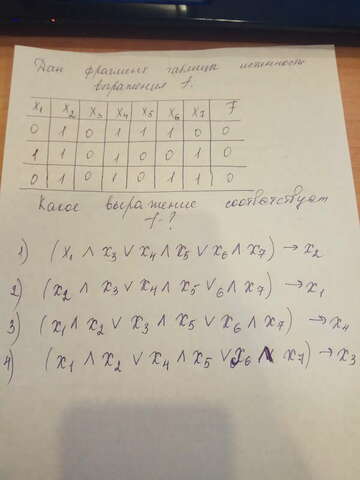 Дан фрагмент таблицы истинности
выражения f.
x1 x2 x3 x4 x5 x6 x7 F
0 1 0 1 1 1 0 0
1 1 0 1 0 0 1 0
0 1 0 1 0 1 1 0
Какое выражение соответствует
f-?
1) (x1 ∧ x3 ∨ x4 ∧ x5 ∨ x6 ∧ x7) → x2
2) (x2 ∧ x3 ∨ x4 ∧ x5 ∨ 6 ∧ x7) → x1
3) (x1 ∧ x2 ∨ x3 ∧ x5 ∨ x6 ∧ x7) → x4
4) (x1 ∧ x2 ∨ x4 ∧ x5 ∨ x6 ∧ x7) → x3